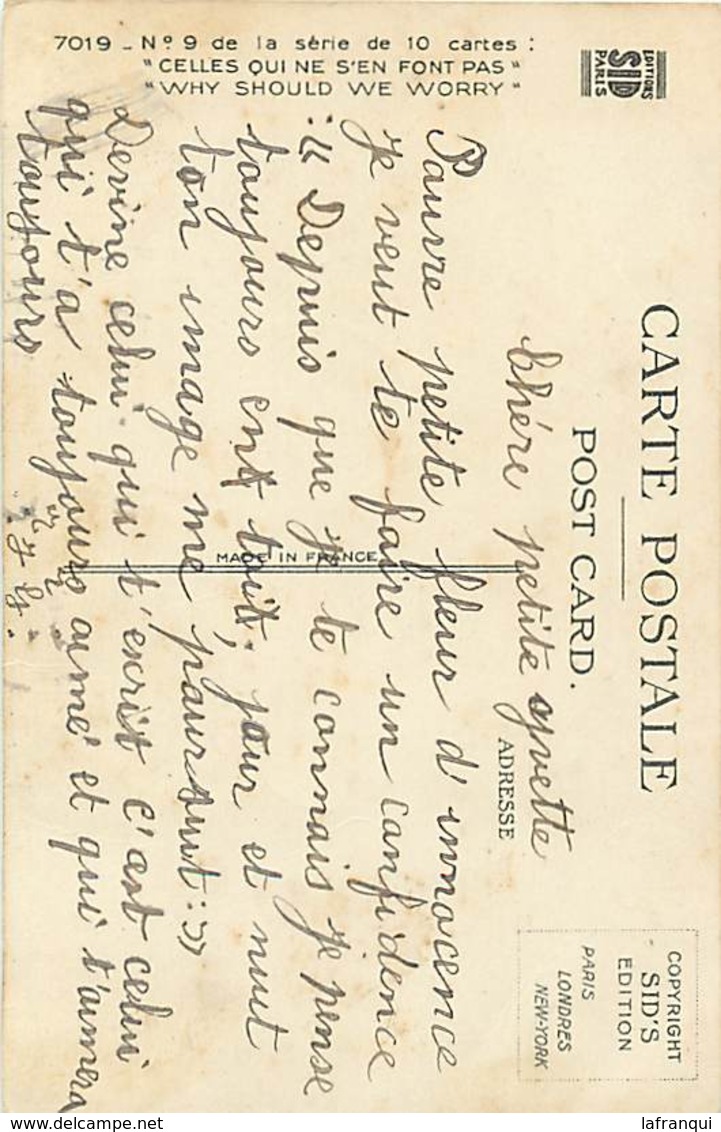 7019 - Nº 9 de la série de 10 cartes :
"CELLES QUI NE S'EN FONT PAS"
"WHY SHOULD WE WORRY"
EDITIONS
SID
PARIS
CARTE POSTALE
POST CARD.
ADRESSE
COPYRIGHT
SID'S
EDITION
PARIS
LONDRES
NEW-YORK
MADE IN FRANCE
Chére petite yvette
Pauvre petite fleur d'innocence
Je veut te faire un confidence
:" Depuis que je te connais je pense
toujours ent toit, jour et nuit
ton image me paursuit :»
Devine celui qui t'escrit c'est celui
qui t'a toujours aimé et qui t'aimera
toujours
lafranqui